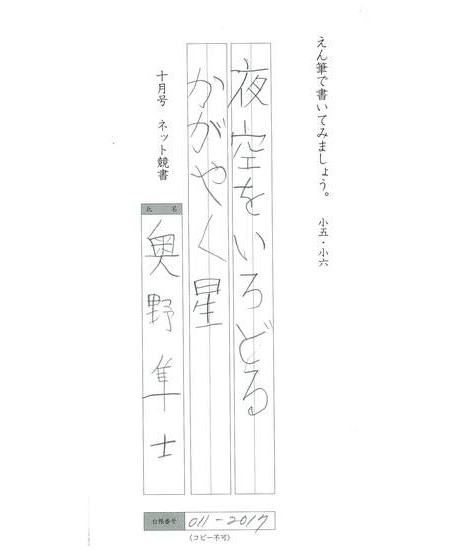 えん筆で書いてみましょう。　小五・小六
夜空をいろどる
かがやく星
十月号　ネット競書
氏名
奥野隼士
台帳番号 011-2017
(コピー不可)